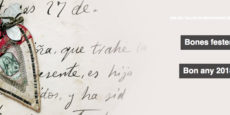 es 27 de.
ña, que trahe la
esente, es hija
idos, y ha sid
Bones feste
Bon any 201